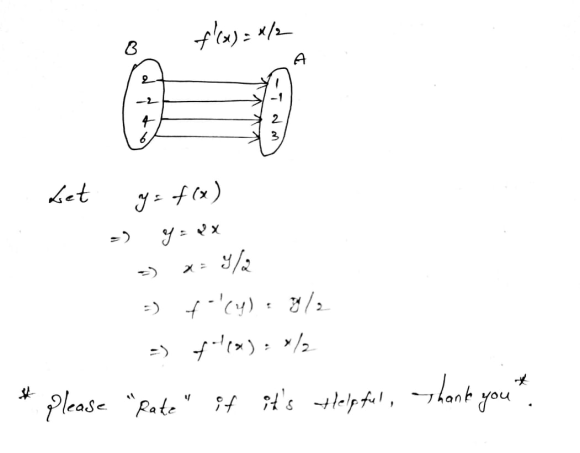 f'(x) = x/2
B
A
2 1
-2 -1
4 2
6 3
Let y = f(x)
=) y = 2x
=) x = y/2
=) f-'(y) = y/2
=) f-'(x) = x/2
* Please "Rate" if it's Helpful, Thank you *.